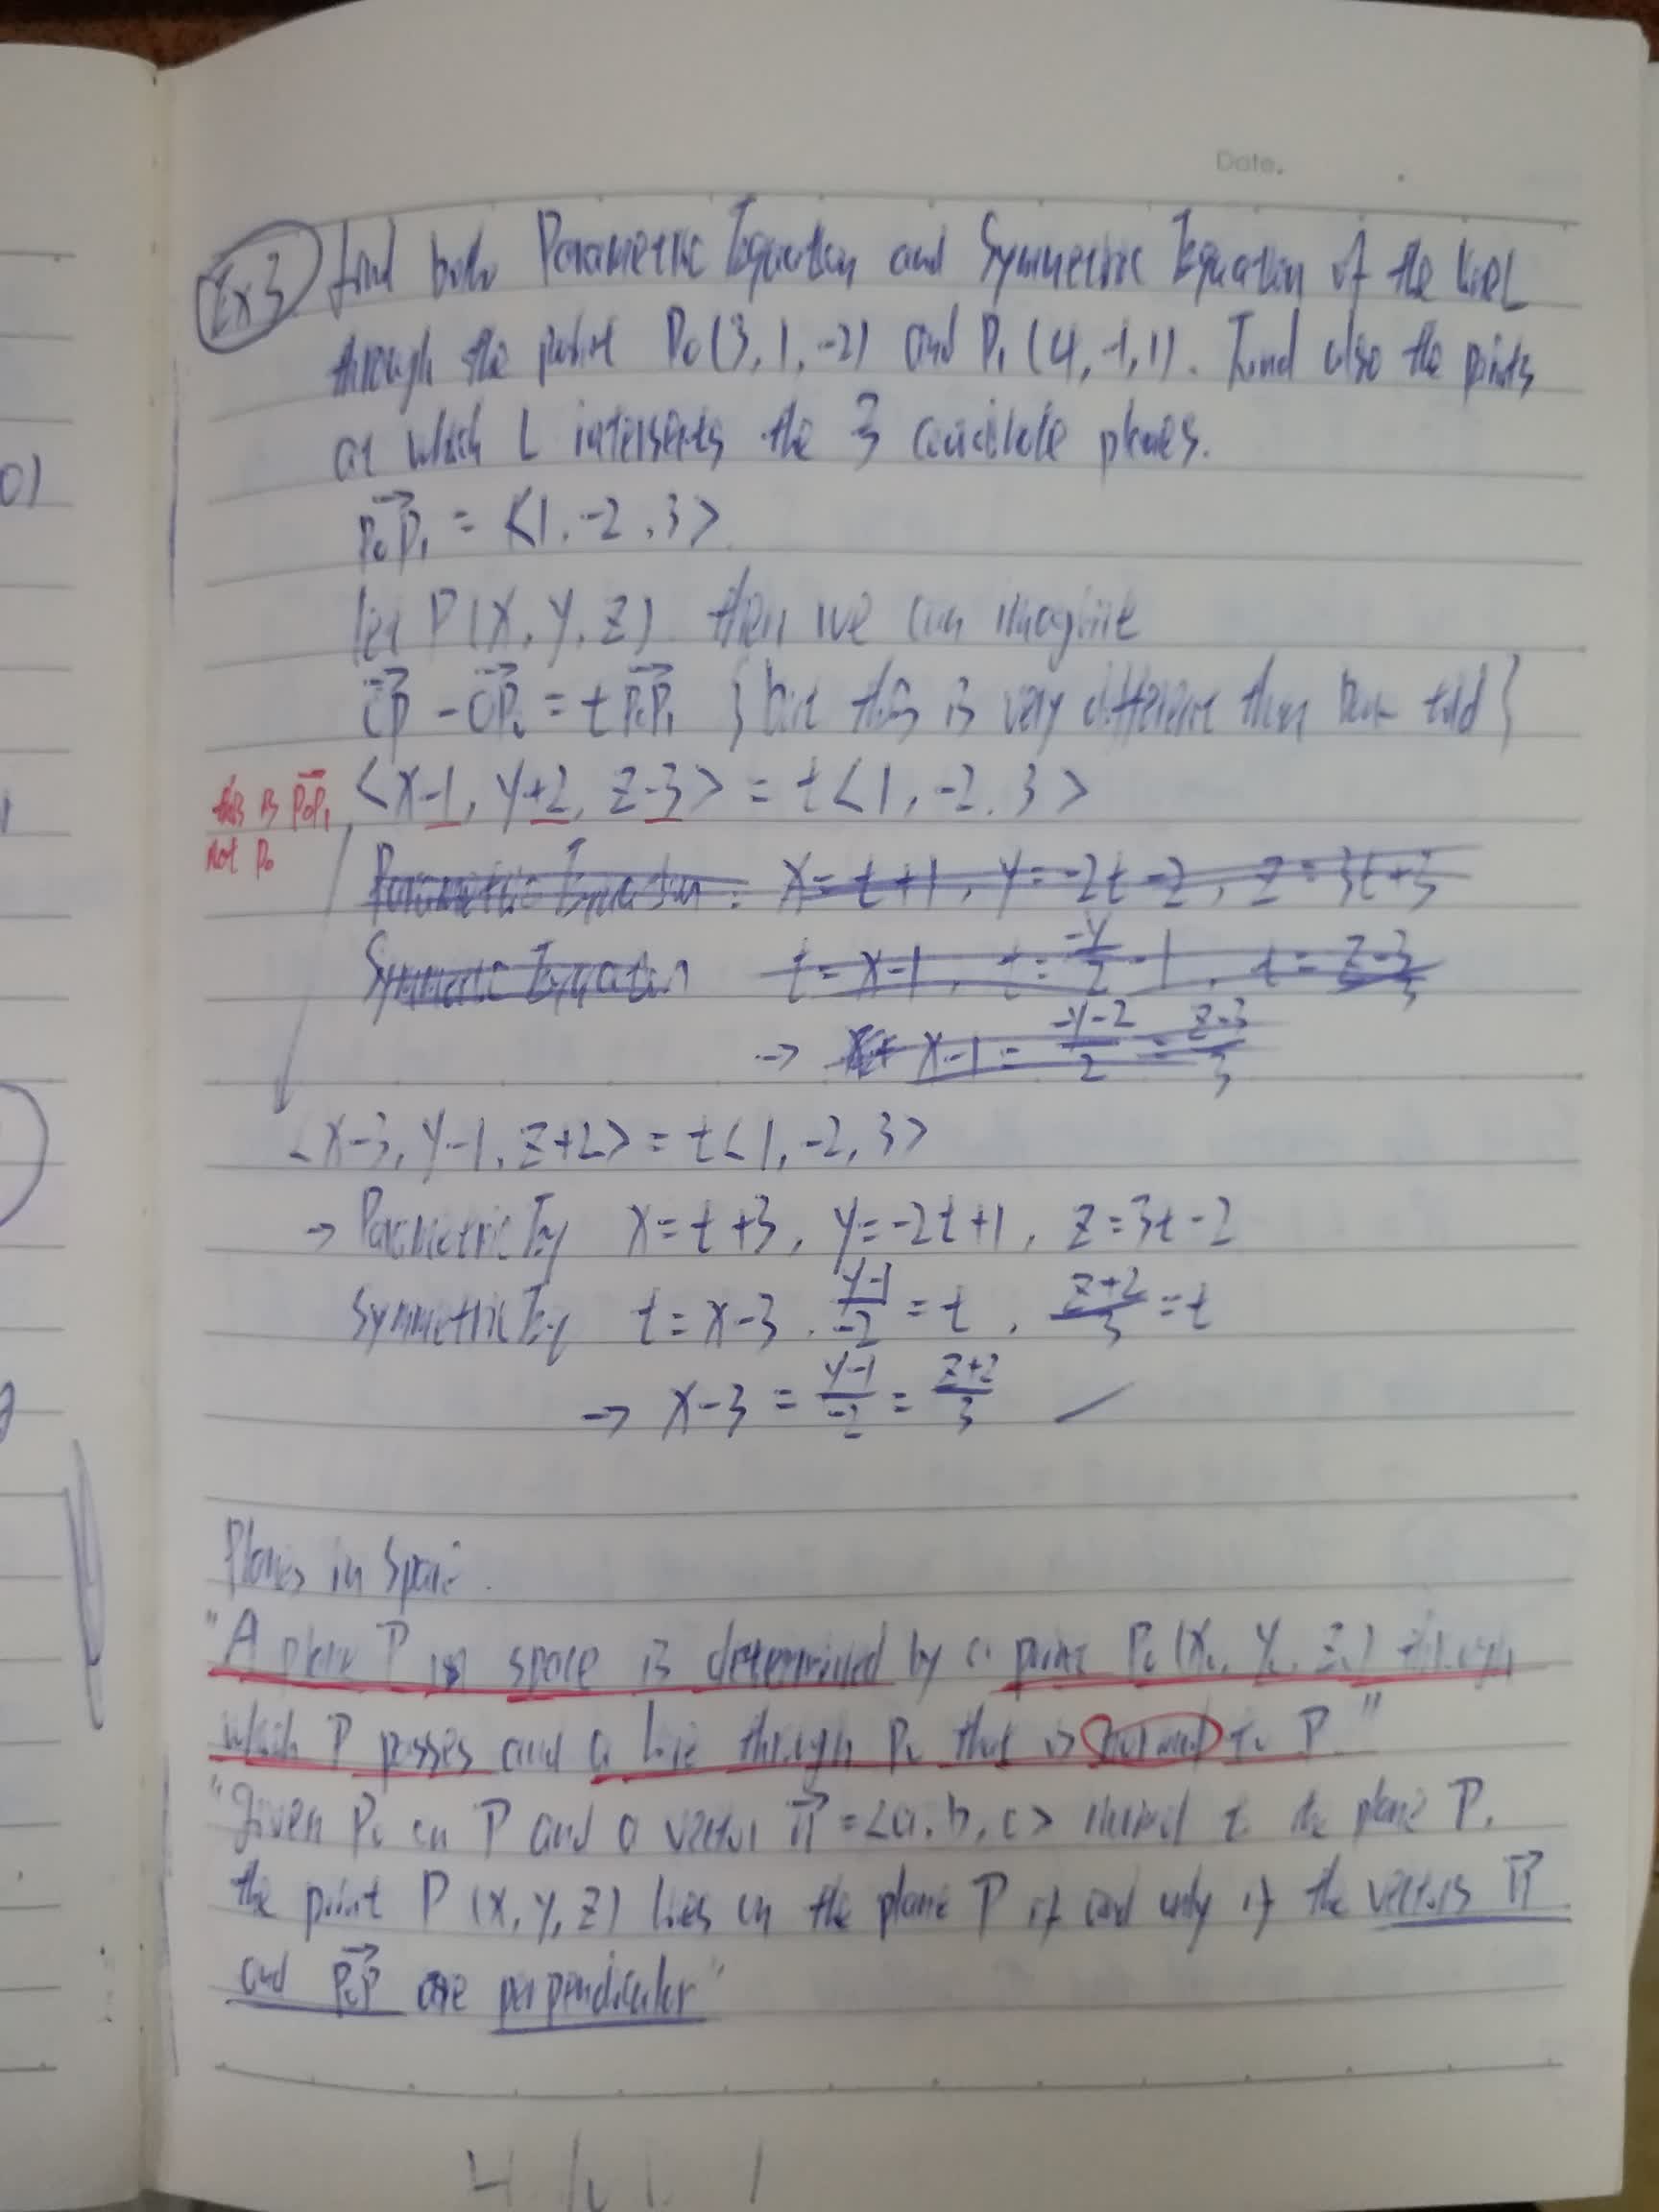 Date.
Ex3 find both Parametric Equation and Symmetric Equation of the line L
through the point P₀(3, 1, -2) and P₁(4, -1, 1). Find also the points
at which L intersects the 3 coordinate planes.
P₀P₁ = <1, -2, 3>
let P(X, Y, Z) then we can imagine
OP - OP₀ = t P₀P₁ { but this is very different than book told }
this is P₀P₁, <X-1, Y+2, Z-3> = t<1, -2, 3>
not P₀
Parametric Equation : X=t+1, Y=-2t-2, Z=3t+3
Symmetric Equation t=X-1, t=-Y/2-1, t=Z-3/3
→ X-1 = -Y-2/2 = Z-3/3
<X-3, Y-1, Z+2> = t<1, -2, 3>
→ Parametric Eq X=t+3, Y=-2t+1, Z=3t-2
Symmetric Eq t=X-3, Y-1/-2 = t, Z+2/3 = t
→ X-3 = Y-1/-2 = Z+2/3
Planes in Space
"A plane P in space is determined by a point P₀(X₀, Y₀, Z₀) through
which P passes and a line through P₀ that is normal to P."
"given P₀ on P and a vector n = <a, b, c> normal to the plane P,
the point P (X, Y, Z) lies on the plane P if and only if the vectors n
and P₀P are perpendicular"